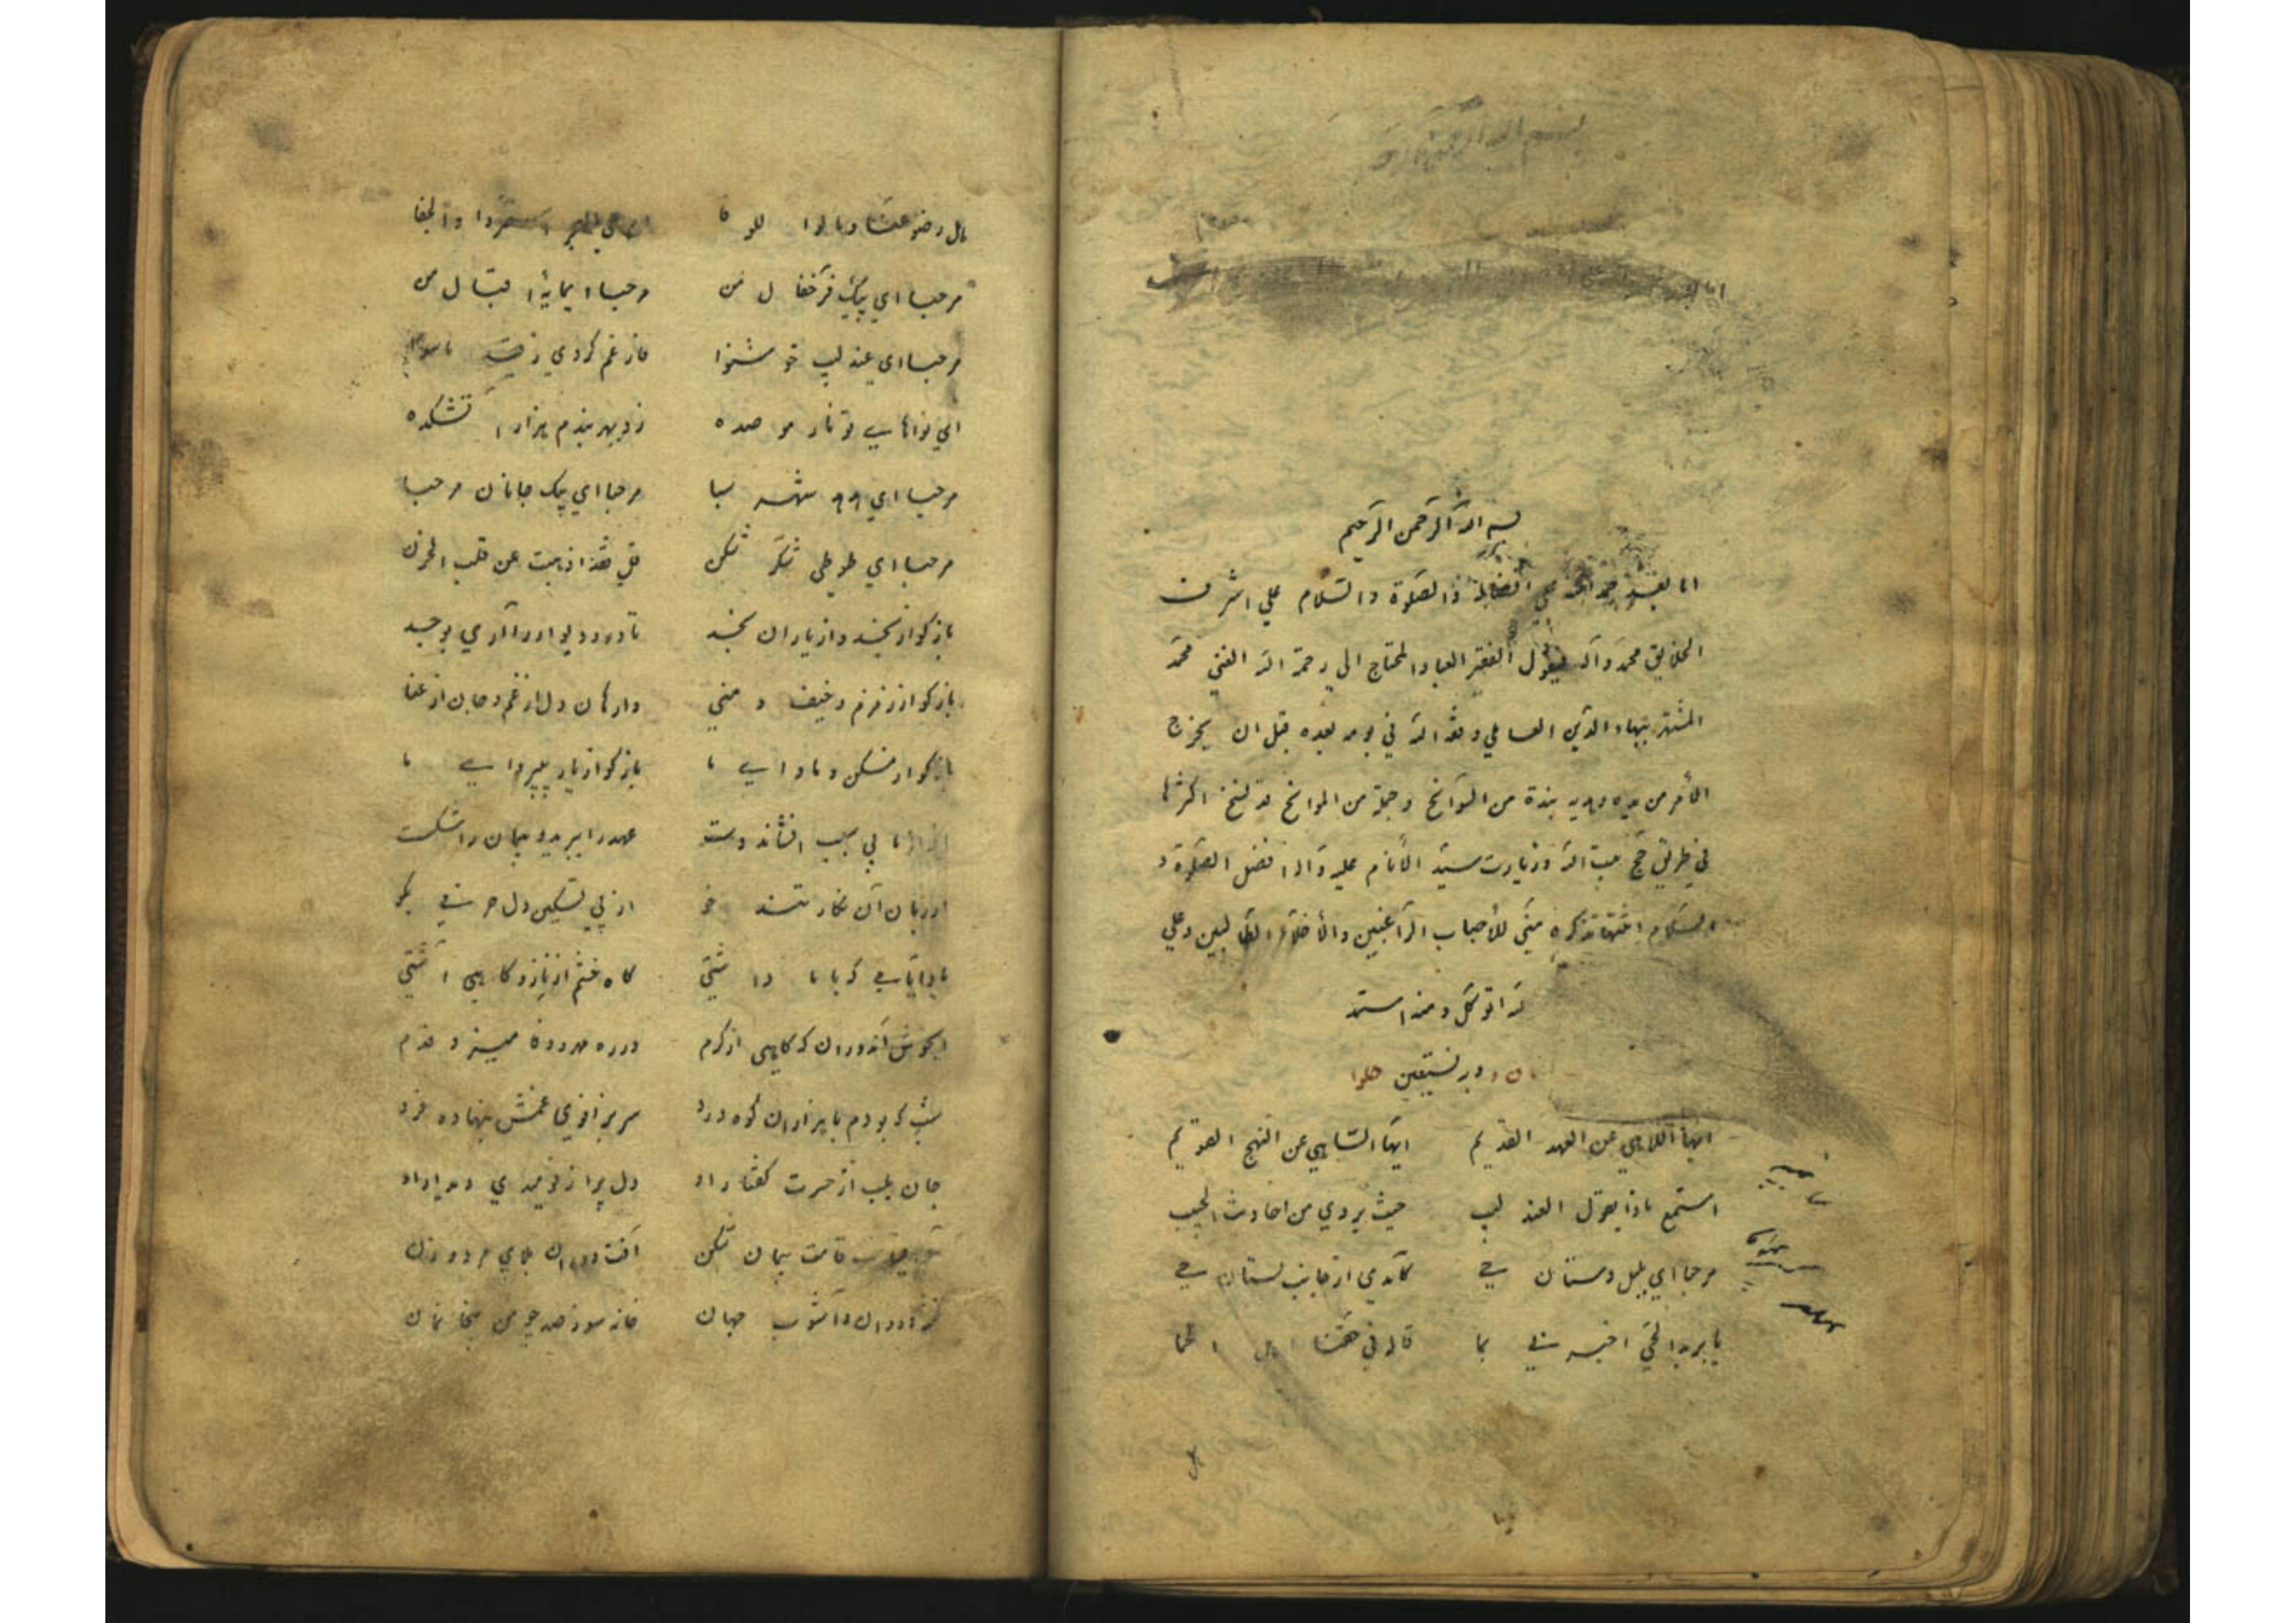 بسم الله الرحمن الرحيم
اما بعد الحمد علي افضاله والصلوة والسلام علي اشرف
الخلايق محمد واله يقول الفقير العباد المحتاج الي رحمة الله الغني محمد
المشتهر ببهاء الدين العاملي وفقه الله في يومه لغده قبل ان يخرج
الأمر من يده وهذه نبذة من السوانح وجملة من الموانح قد سنح اكثرها
في طريق حج بيت الله وزيارت سيد الأنام عليه وآله افضل الصلوة و
السلام تذكره مني للأحباب الراغبين والأخلاء الطالبين وعلي
الله اتوكل ومنه استمد
نان و وبه نستعين حلوا
ايها اللاهي عن العهد القديم ايها الساهي عن النهج القويم
استمع ماذا يقول العندليب حيث يروي من احاديث الحبيب
مرحبا اي بلبل دستان حي كامدي از جانب بستان حي
يا بريد الحي اخبرني بما قاله في حقنا اهل الحما
هل رضوا عنا ومالوا للوفا ام علي الهجر استمروا والجفا
مرحبا اي پيك فرخ فال من مرحبا اي مايه اقبال من
مرحبا اي عندليب خوشنوا فارغم كردي ز قيد ماسوا
اي نواهاي تو نار موصده زد بهر بندم هزار آتشكده
مرحبا اي هدهد شهر سبا مرحبا اي پيك جانان مرحبا
مرحبا اي طوطي شكر شكن قل فقد اذهبت عن قلب الحزن
بازگو از نجد و از ياران نجد تا در و ديوار را آري بوجد
بازگو از زمزم و خيف و مني وارهان دل از غم و جان از عنا
بازگو از مسكن و ماواي ما بازگو از يار بيپرواي ما
از ما بي سبب افشاند دست عهد را ببريد و پيمان را شكست
از زبان آن نگار تند خو از پي تسكين دل حرفي بگو
ياد ايامي كه با ما داشتي گاه خشم از ناز و گاهي آشتي
ايخوش آندوران كه گاهي از كرم در ره مهر و وفا ميزد قدم
شب كه بودم با هزاران كوه درد سر بزانوي غمش بنهاده فرد
جان بلب از حسرت گفتار او دل پر از نوميدي ديدار او
قامت پيمان شكن آفت دوران بلاي مرد و زن
فتنه دوران و آشوب جهان خانه سوز صد چو من بيخانمان